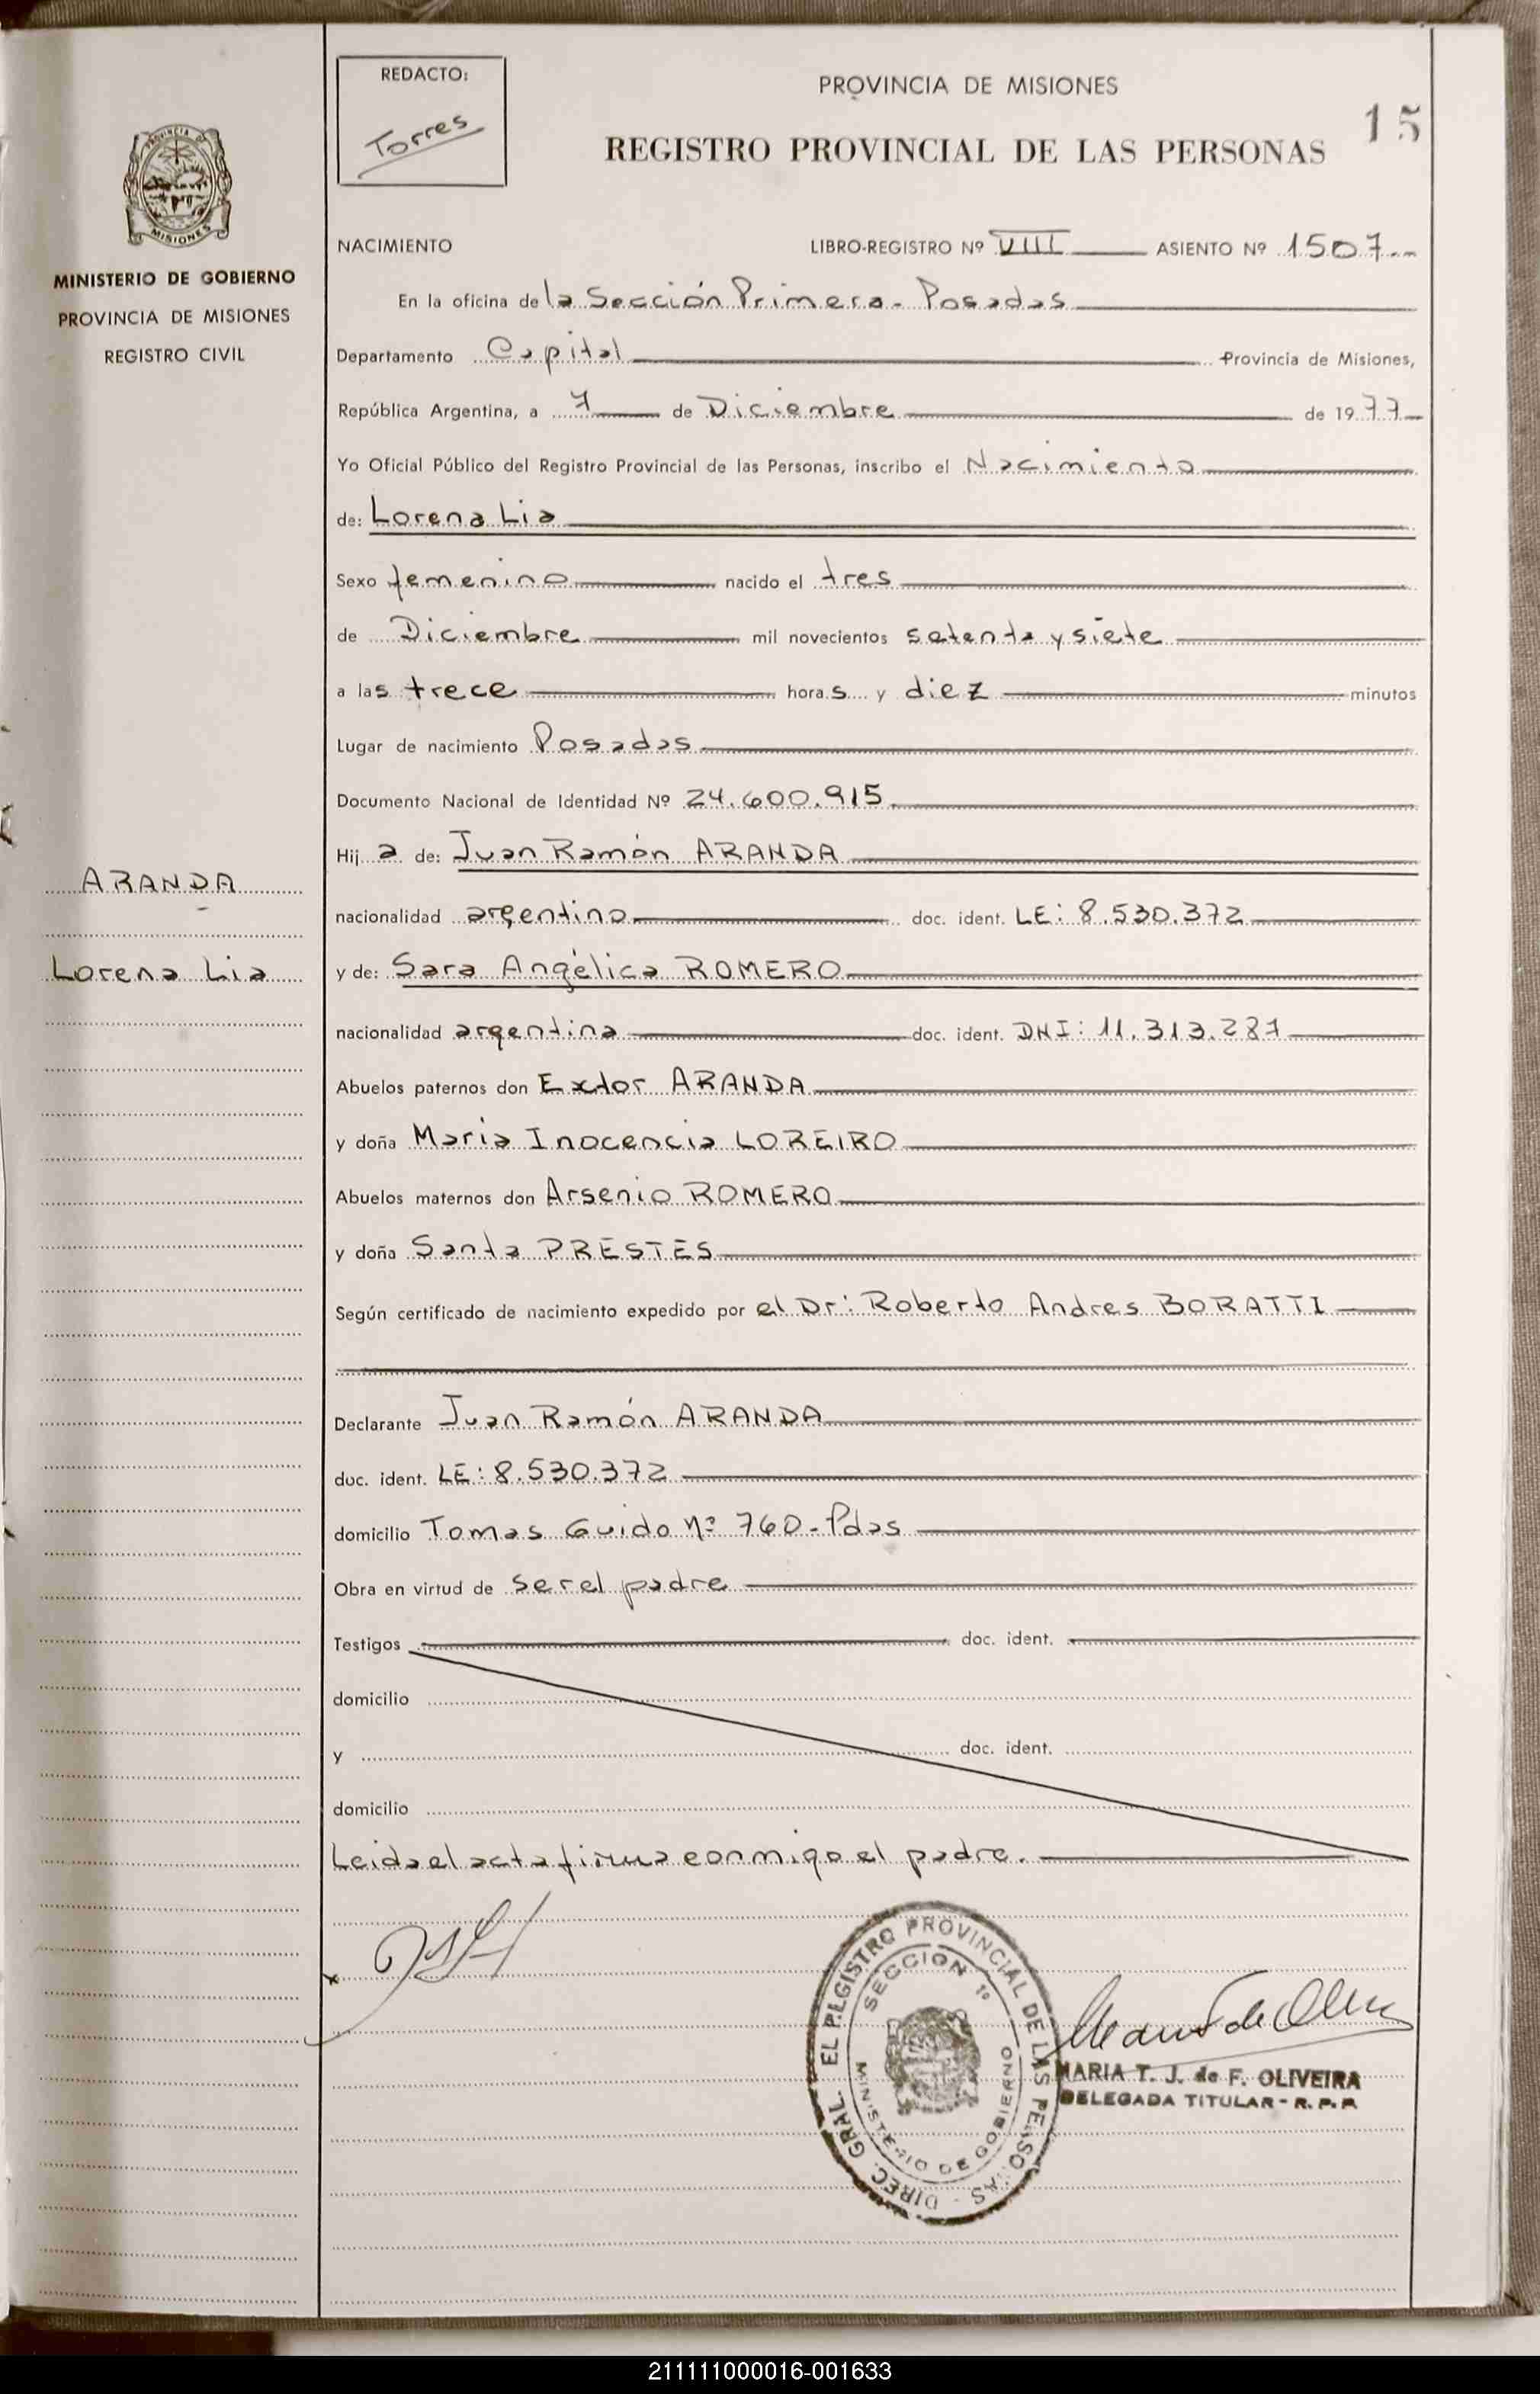 REDACTO:
Torres
PROVINCIA DE MISIONES
15
REGISTRO PROVINCIAL DE LAS PERSONAS
PROVINCIA DE MISIONES
MINISTERIO DE GOBIERNO
PROVINCIA DE MISIONES
REGISTRO CIVIL
NACIMIENTO LIBRO-REGISTRO Nº VIII ASIENTO Nº 1507
En la oficina de la Sección Primera - Posadas
Departamento Capital Provincia de Misiones,
República Argentina, a 7 de Diciembre de 1977
Yo Oficial Público del Registro Provincial de las Personas, inscribo el Nacimiento
de: Lorena Lia
Sexo femenino nacido el tres
de Diciembre mil novecientos setenta y siete
a las trece horas y diez minutos
Lugar de nacimiento Posadas
Documento Nacional de Identidad Nº 24.600.915
Hija de: Juan Ramón ARANDA
ARANDA
nacionalidad argentino doc. ident. LE: 8.530.372
Lorena Lia
y de: Sara Angélica ROMERO
nacionalidad argentina doc. ident. DNI: 11.313.287
Abuelos paternos don Exdor ARANDA
y doña Maria Inocencia LOREIRO
Abuelos maternos don Arsenio ROMERO
y doña Santa PRESTES
Según certificado de nacimiento expedido por el Dr: Roberto Andres BORATTI
Declarante Juan Ramón ARANDA
doc. ident. LE: 8.530.372
domicilio Tomas Guido Nº 760 - Pdas
Obra en virtud de ser el padre
Testigos doc. ident.
domicilio
y doc. ident.
domicilio
Leida el acta firma conmigo el padre.
DIREC. GRAL. EL REGISTRO PROVINCIAL DE LAS PERSONAS
SECCION 1º
MINISTERIO DE GOBIERNO
MARIA T. J. de F. OLIVEIRA
DELEGADA TITULAR - R. P. P.
211111000016-001633